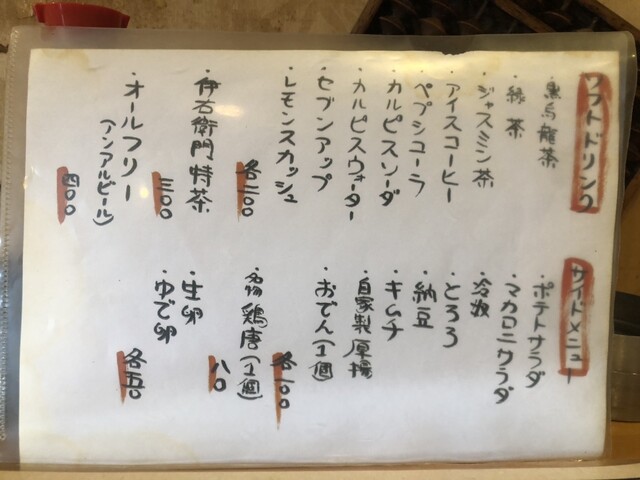 ソフトドリンク
・黒烏龍茶
・緑茶
・ジャスミン茶
・アイスコーヒー
・ペプシコーラ
・カルピスソーダ
・カルピスウォーター
・セブンアップ
・レモンスカッシュ
各二〇〇
・伊右衛門特茶
三〇〇
・オールフリー
(ノンアルビール)
四〇〇
サイドメニュー
・ポテトサラダ
・マカロニサラダ
・冷奴
・とろろ
・納豆
・キムチ
・自家製厚揚
・おでん(1個)
各一〇〇
・名物鶏唐(1個)
八〇
・生卵
・ゆで卵
各五〇